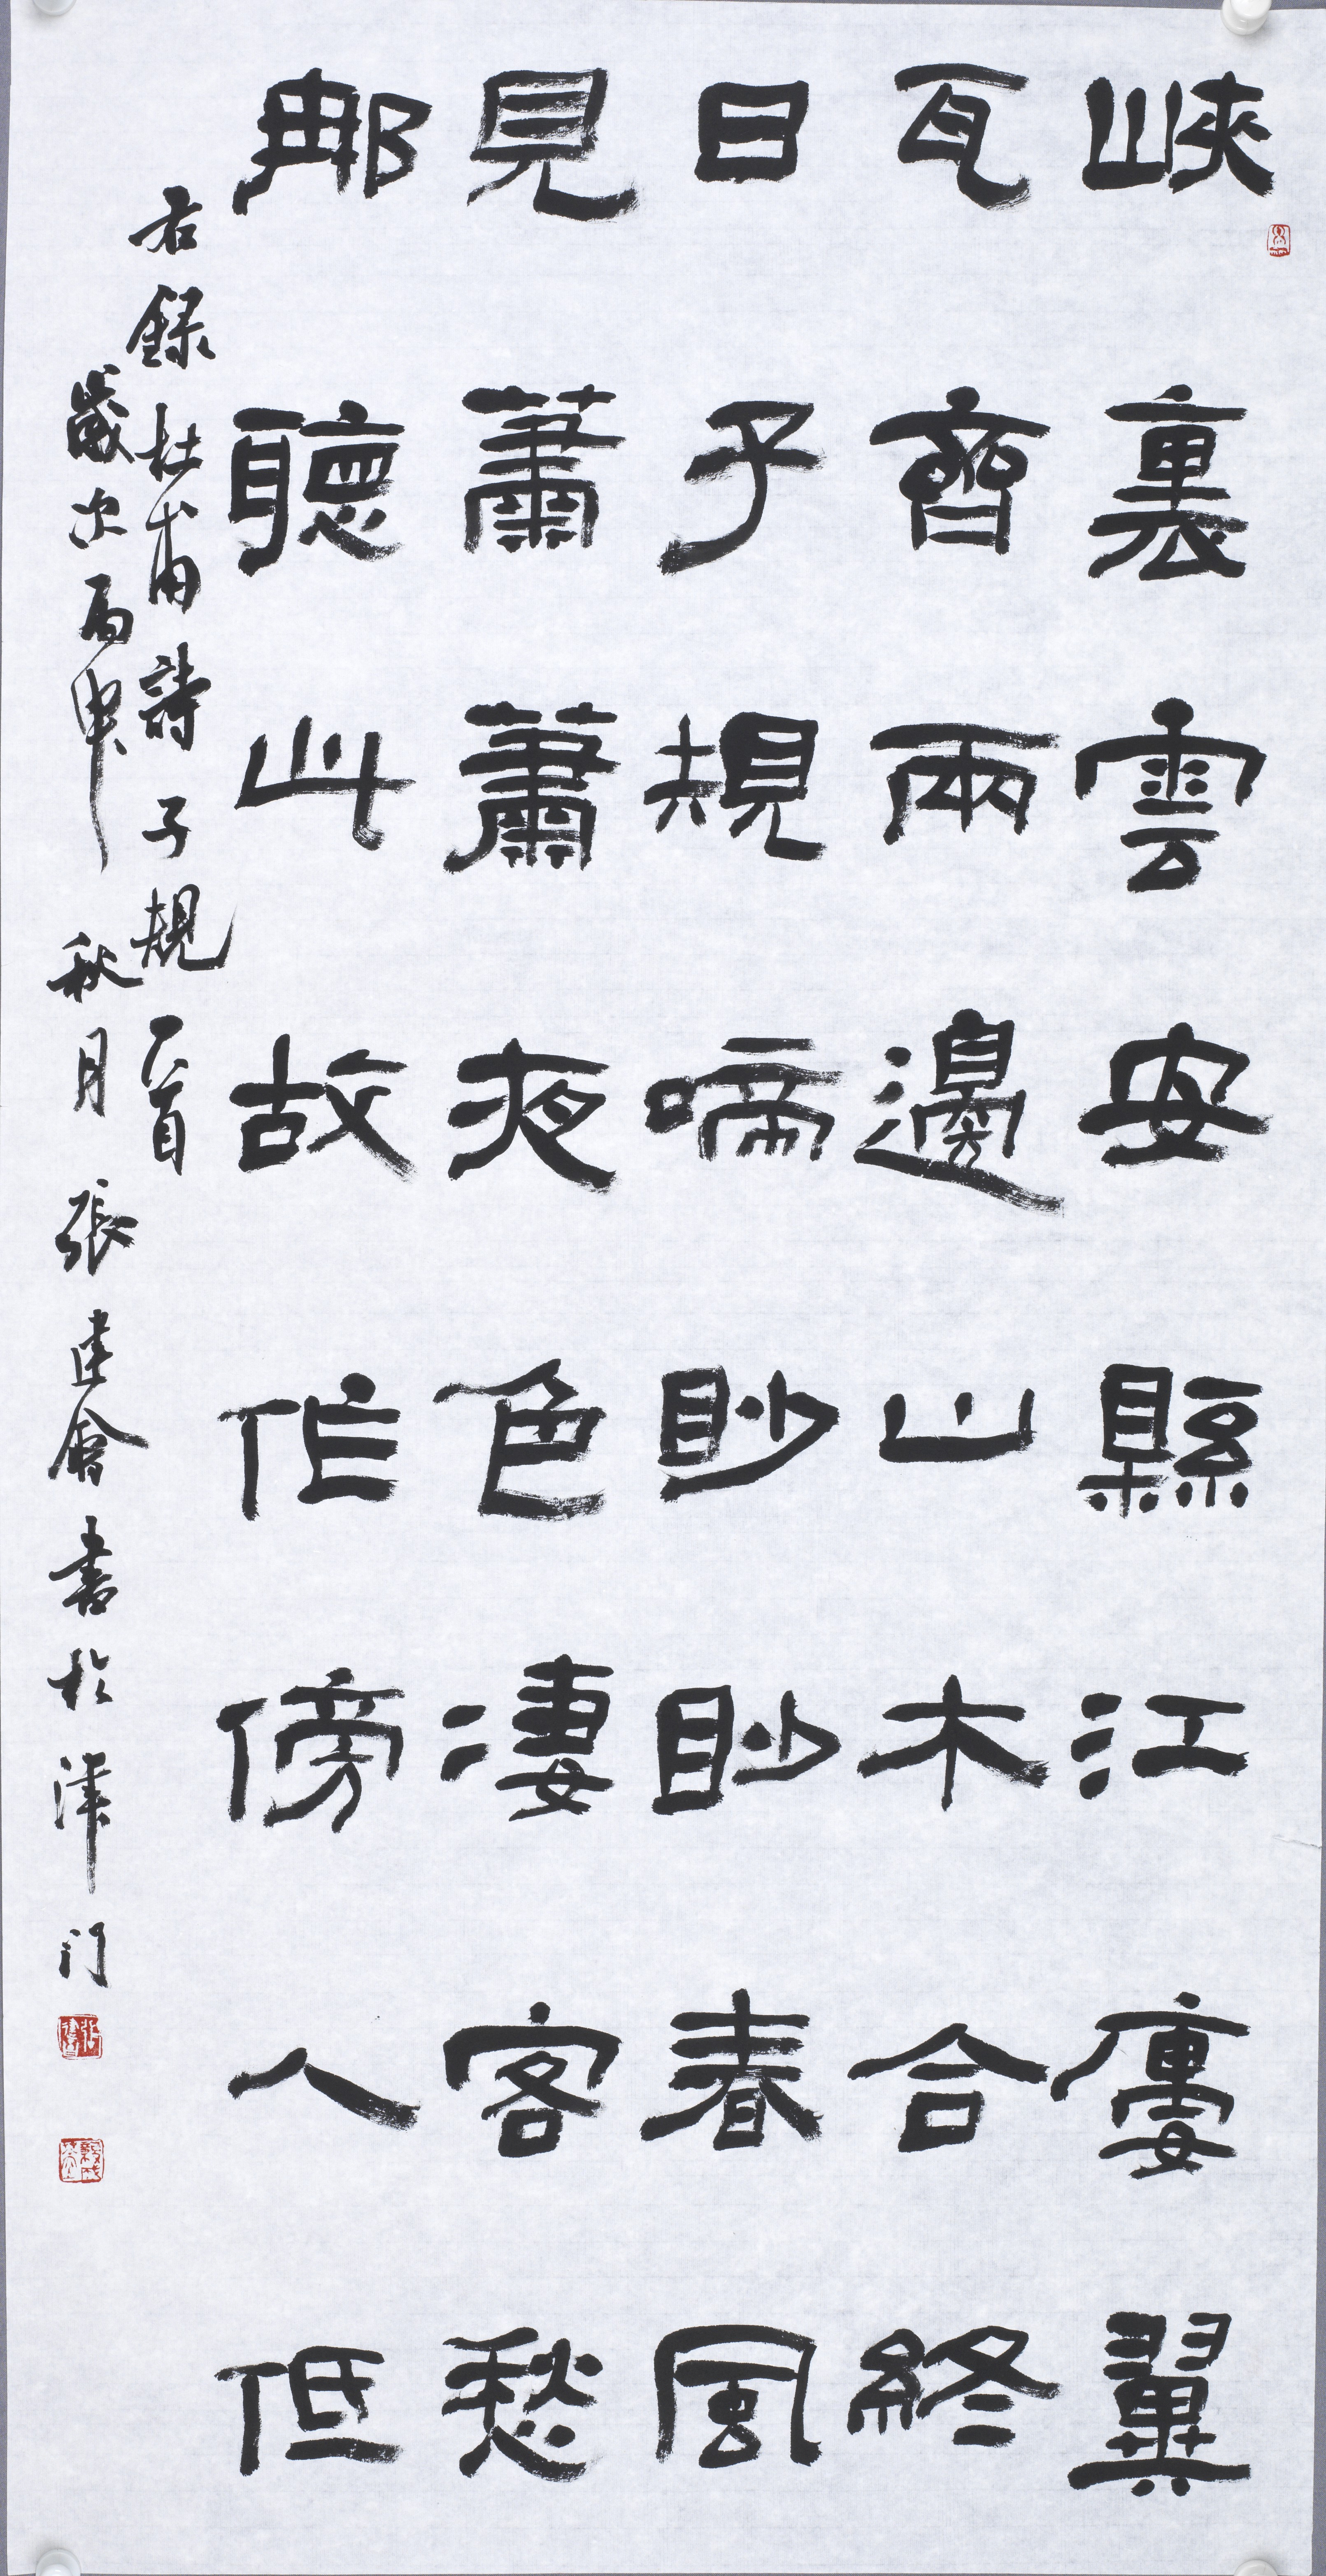 峽裏雲安縣江廔翼
瓦齊兩邊山木合終
日子規啼眇眇春風
見蕭蕭夜色凄客愁
那聽此故作傍人低
右録杜甫詩子規一首
歲次丙申秋月張建會書於津门